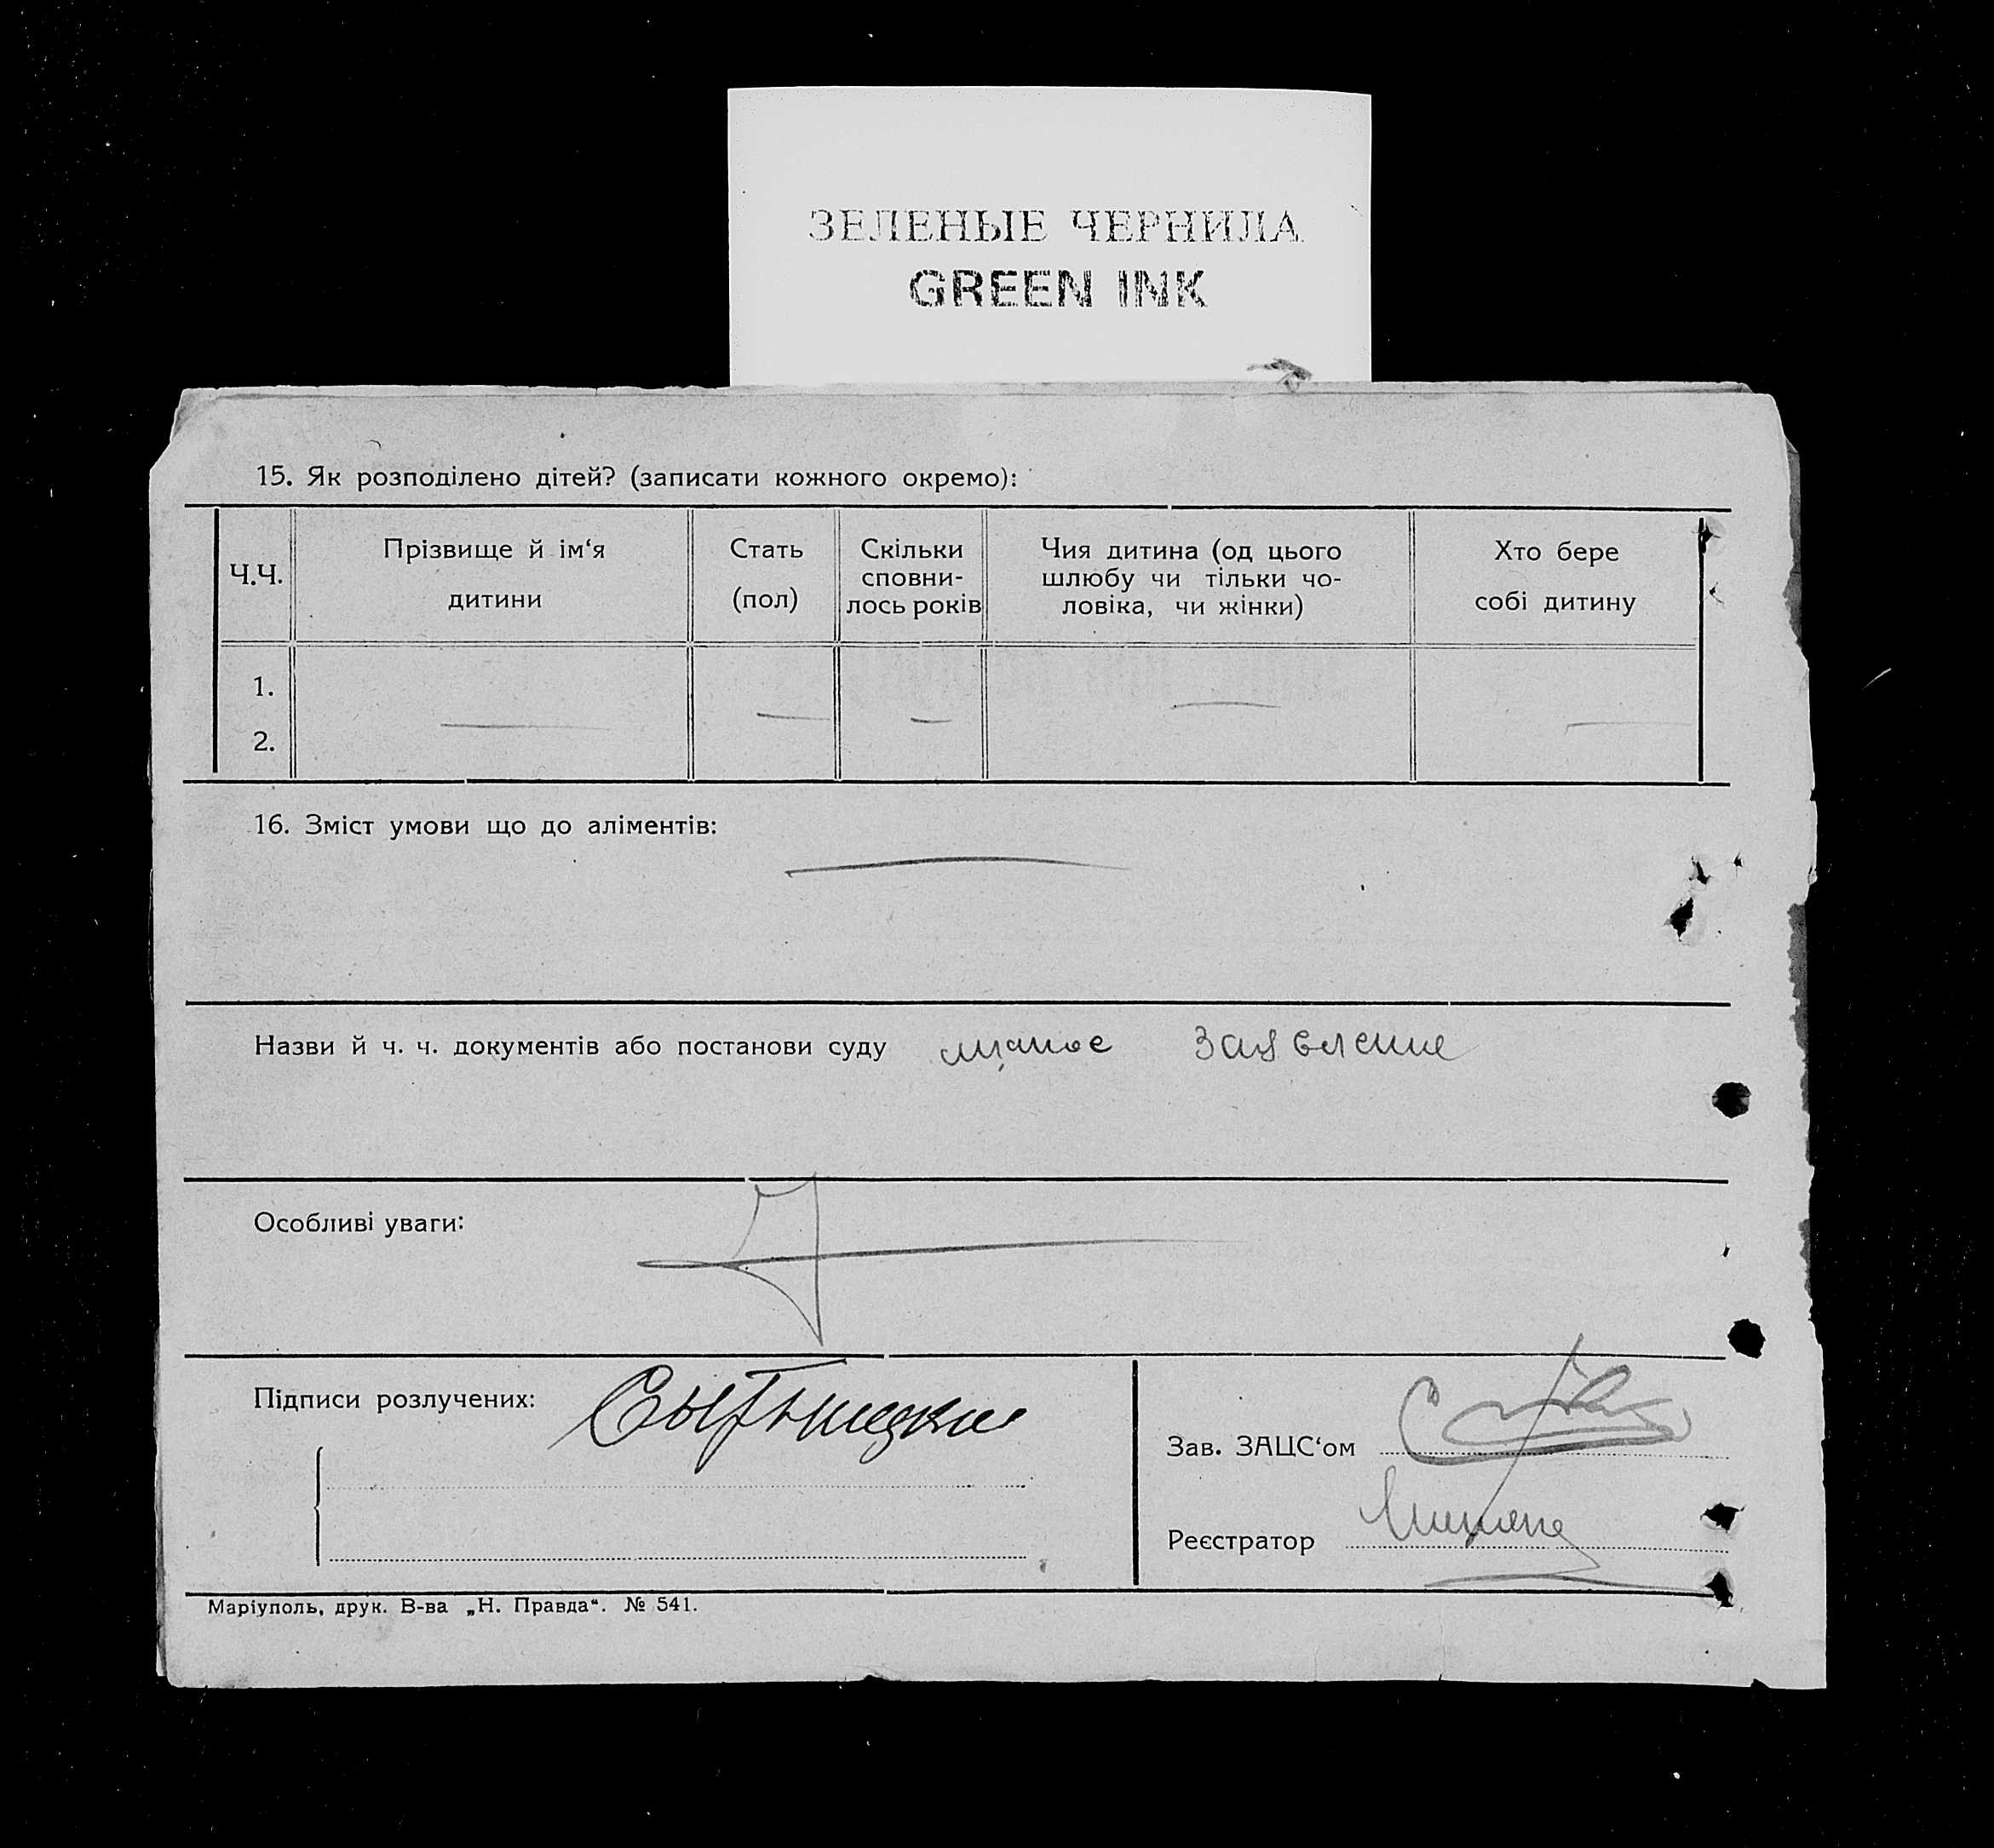 ЗЕЛЕНЫЕ ЧЕРНИЛА
GREEN INK
15. Як розподілено дітей? (записати кожного окремо):
Ч.Ч.
Прізвище й ім‘я
дитини
Стать
(пол)
Скільки
сповни-
лось років
Чия дитина (од цього
шлюбу чи тільки чо-
ловіка, чи жінки)
Хто бере
собі дитину
1.
2.
16. Зміст умови що до аліментів:
Назви й ч. ч. документів або постанови суду заявление
Особливі уваги:
Підписи розлучених:
Зав. ЗАЦС‘ом
Реєстратор
Маріуполь, друк. В-ва „Н. Правда“. № 541.